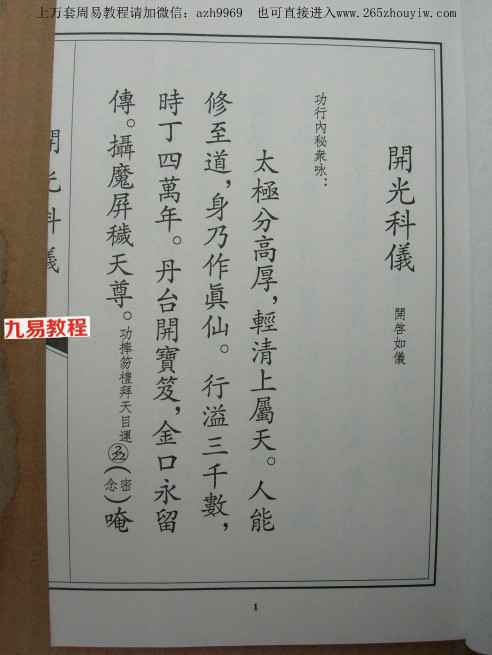 上万套周易教程请加微信：azh9969 也可直接进入www.265zhouyiw.com
開光科儀
開啓如儀
功行內秘衆咏：
太極分高厚，輕清上屬天。人能
修至道，身乃作眞仙。行溢三千數，
時丁四萬年。丹台開寶笈，金口永留
傳。攝魔屏穢天尊。功捧笏禮拜天目運（密念）唵
開光科儀
九易教程
1